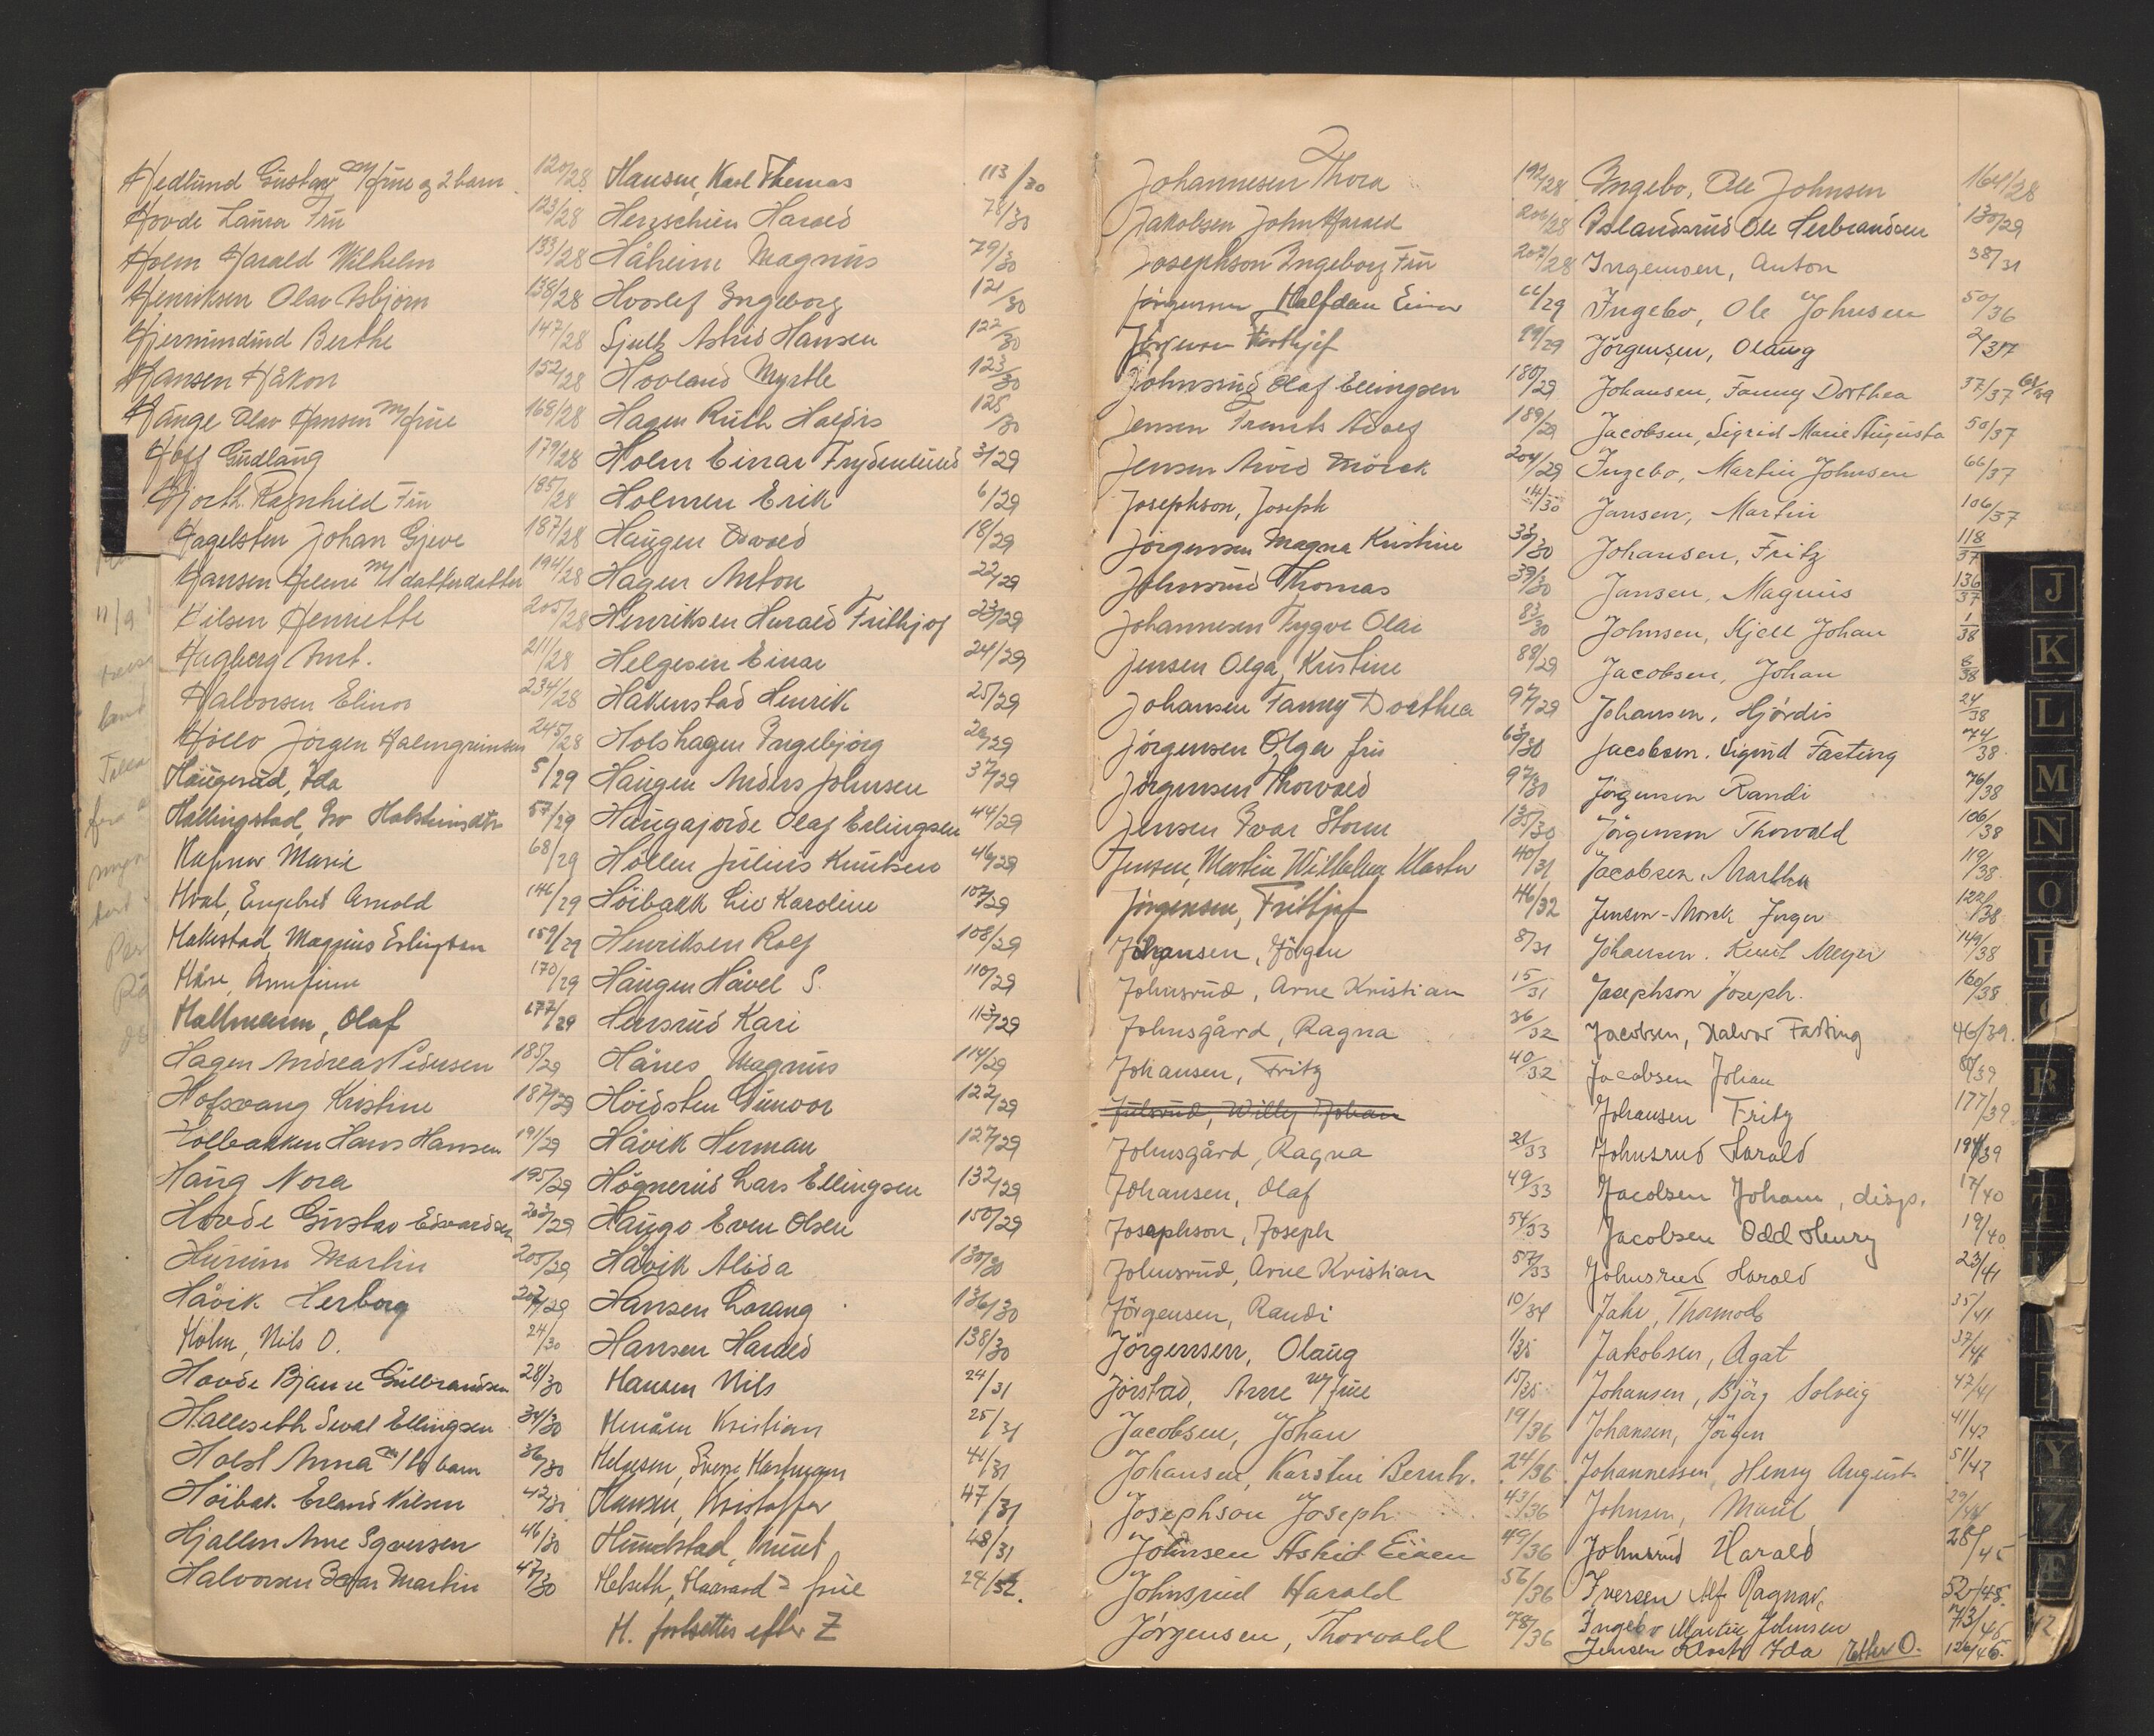 Hedlund Gustav m/frue og 2 barn 120/28
Hovde Laura Fru 123/28
Holm Harald Wilhelm 133/28
Henriksen Olav Asbjørn 138/28
Berthe 147/28
Hansen Håkon 152/28
Hauge Olav Hansen m/frue 168/28
Hoff Gudlaug 179/28
Hjorth Ragnhild Fru 185/28
Hagelsten Johan Gjeve 187/28
Hansen Helene m/datterdatter 194/28
Henriette 205/28
Hagberg Amt. 211/28
Halvorsen Elinor 234/28
Höllo Jörgen Halmgrimsen 245/28
Haugerud, Ida 5/29
Hallingstad, Bro 57/29
Hafnor Marie 68/29
Hval, Engebret Arnold 146/29
Hakestad, Magnus Erlingsen 159/29
Håre, Arnfinn 170/29
Hallmann, Olaf 177/29
Hagen Andreas Pedersen 185/29
Hofsvang Kristine 187/29
Holbakken Hans Hansen 191/29
Haug Nora 195/29
Hovde Gustav Edvardsen 203/29
Hurum Martin 205/29
Håvik Herborg 207/29
Holm, Nils O. 24/30
Hovde Bjarne Gulbrandsen 28/30
Halleseth Sevat Ellingsen 34/30
Holst Anna m/ barn 36/30
Höibak Erland Nilsen 42/30
Hjallen Arne Sgoursen 46/30
Halvorsen Martin 47/30
Hansen, Karl Thomas 113/30
Herzschien Harald 78/30
Håheim Magnus 79/30
Hvoslef Ingeborg 121/30
Sjulk Astrid Hansen 122/30
Hovland Myrtle 123/30
Hagen Ruth Haldis 125/30
Holm Einar Frydenlund 3/29
Holmen Erik 6/29
Haugen Osvald 18/29
Hagen Anton 22/29
Henriksen Harald Frithjof 23/29
Helgesen Einar 24/29
Håkenstad Henrik 25/29
Holshagen Ingebjörg 26/29
Haugen Anders Johnsen 37/29
Haugajorde Olaf Erlingsen 44/29
Höllen Julius Knutsen 46/29
Höibakk Liv Karoline 107/29
Henriksen Rolf 108/29
Haugen Håvel S. 110/29
Hensrud Kari 113/29
Hånes Magnus 114/29
Höidsten Gunvor 122/29
Håvik Herman 127/29
Högnerud Lars Ellingsen 132/29
Haugo Even Olsen 150/29
Håvik Alida 130/30
Hansen Lorang 136/30
Hansen Harald 138/30
Hansen Nils 24/31
Kristian 25/31
Helgesen, Sverre Hartmann 44/31
Hansen, Kristoffer 47/31
Hundstad, Knut 48/31
Helseth, Haavard = frue 24/32.
H. fortsettes efter Z
Johannesen Thora 199/28
Jakobsen John Harald 206/28
Josephson Ingeborg Fru 207/28
Jörgensen Halfdan Einar 66/29
Jörgensen Frithjof 99/29
Johnsrud Olaf Ellingsen 180/29
Jensen Frants Adolf 189/29
Jensen Arvid Mörck 204/29
Josephson, Joseph 14/30
Jörgensen Magna Kristine 33/30
Johnsrud Thomas 39/30
Johannesen Trygve Olai 83/30
Jensen Olga, Kristine 88/29
Johansen Fanny Dorthea 97/29
Jörgensen Olga fru 63/30
Jörgensen Thorvald 97/30
Jensen Ivar Storm 135/30
Jensen, Martin Wilhelm Kloster 40/31
Jörgensen, Frithjof 46/32
Johansen, Jörgen 8/31
Johnsrud, Arne Kristian 15/31
Johnsgård, Ragna 36/32
Johansen, Fritz 40/32
Julsrud, Willy Johan
Johnsgård, Ragna 21/33
Johansen, Olaf 49/33
Josephson, Joseph 54/33
Johnsrud, Arne Kristian 57/33
Jörgensen, Randi 10/34
Jörgensen, Olaug 1/35
Jörstad, Arne m/frue 15/35
Jacobsen, Johan 19/36
Johansen, Karsten Bernh. 24/36
Josephson Joseph 43/36
Johnsen Astrid Eileen 49/36
Johnsrud Harald 56/36
Jörgensen, Thorvald 78/36
Ingebo, Ole Johnsen 164/28
Islandsrud Ole Herbrandsen 130/29
Ingemoen, Anton 38/31
Ingebo, Ole Johnsen 50/36
Jörgensen, Olaug 2/37
Johansen, Fanny Dorthea 37/37 68/39
Jacobsen, Sigrid Marie Augusta 50/37
Ingebo, Martin Johnsen 66/37
Jansen, Martin 106/37
Johansen, Fritz 118/37
Jansen, Magnus 136/37
Johnsen, Kjell Johan 1/38
Jacobsen, Johan 8/38
Johansen, Hjördis 24/38
Jacobsen, Sigurd Fasting 74/38
Jörgensen Randi 76/38
Jörgensen Thorvald 106/38
Jacobsen, Martha 119/38
Jensen-Morck Jørgen 122/38
Johansen, Knut Meyer 149/38
Josephson Joseph. 160/38
Jacobsen, Halvor Fasting 46/39.
Jacobsen Johan 80/39
Johansen Fritz 177/39
Johnsrud Harald 194/39
Jacobsen Johan, disp. 17/40
Jacobsen Odd Henry 19/40
Johnsrud Harald 23/41
Jahr, Thormod 35/41
Jakobsen, Agat 37/41
Johansen, Bjørg Solveig 47/41
Johansen, Jörgen 41/42
Johannessen, Henry August 51/42
Johnsen, Marit 29/44
Johnsrud Harald 28/45
Iversen Alf Ragnar, 52/45.
Ingebo Martin Johnsen 73/45
Jensen Kloster Ida Etter O. 126/45.
J
K
L
M
N
O
P
R
T
Y
Z
Æ